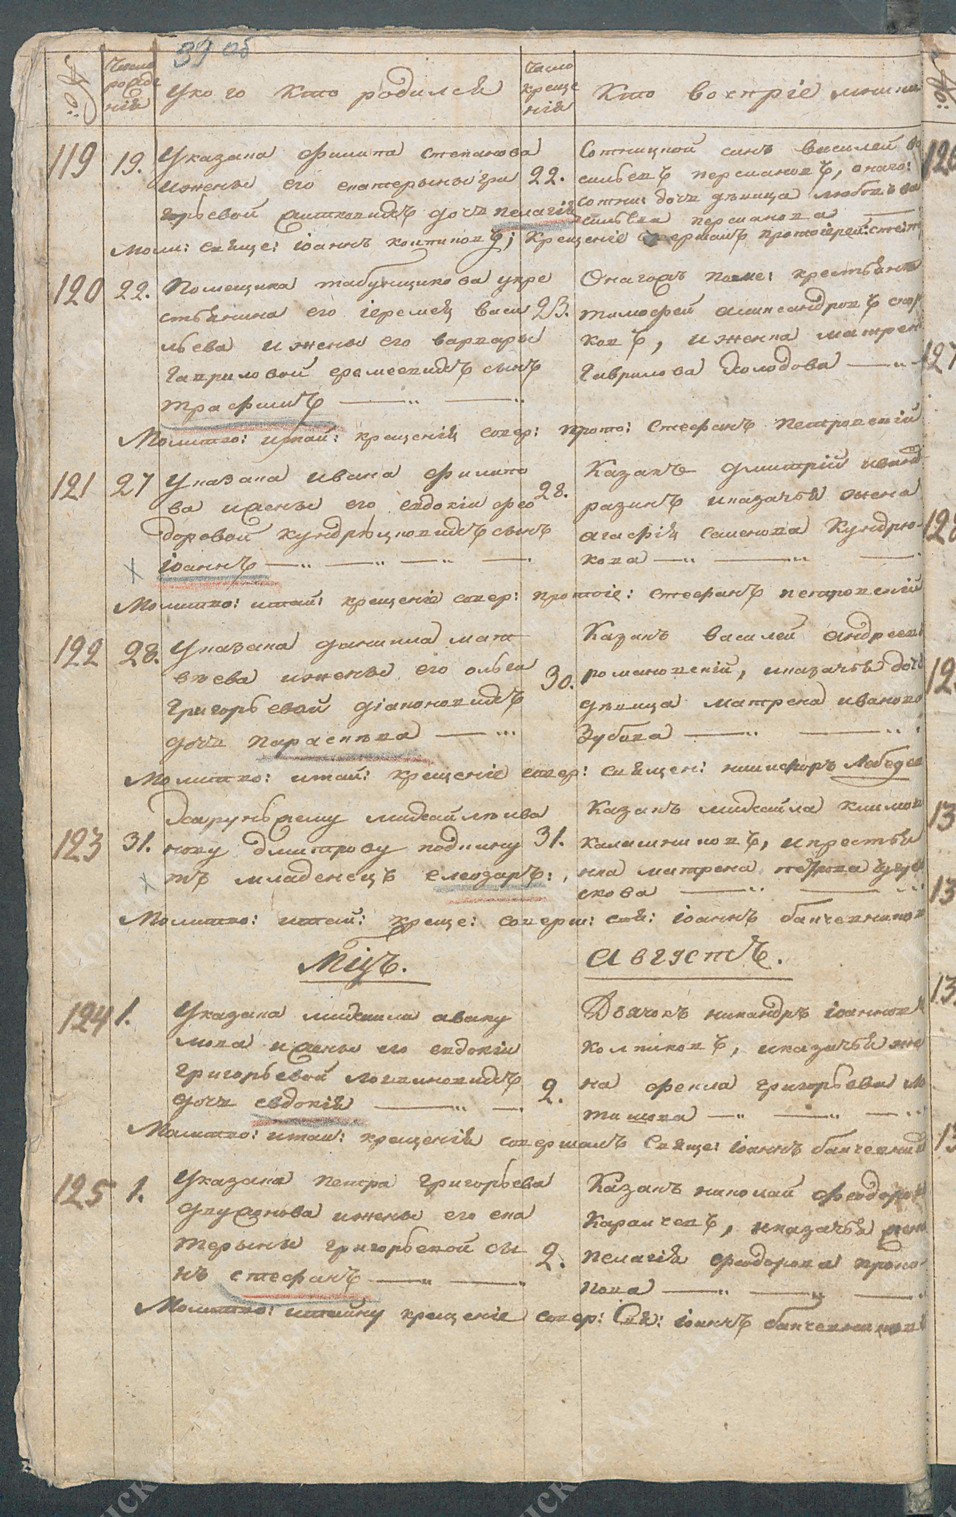 39 об
№:
Число рожде нія
У кого кто родился
Число креще нія
Кто воспріе мники
119 19. У казака Филипа Степанова
и жены его екатерыны гри
горьевой дочь пелагія
22.
Сотницкой сынъ василей ва
сильевъ персиановъ, онаго:
сотни: дочь девица любовь ва
сильева персианова
Моли: свяще: іоаннъ ; крещеніе совершалъ протоіерей: стеф:
120 22. Помещика табунщикова у кре
стьянина его іеремея васи
льева и жены его варвары
гавриловой еремеевыхъ сынъ
трафимъ
23.
Онагожъ поме: крестьянинъ
тимофей александровъ
ковъ, и женка матрен
гаврилова холодова
Молитво: и тай: крещенія совер: прото: Стефанъ петровскій
121 27 У казака ивана Филипо
ва и жены его евдокіи фео
доровой кундрюцковыхъ сынъ
іоаннъ
28.
Казакъ дмитрій иванов
разинъ и казачья жена
агафія семенова кундрю-
кова
Молитво: и тай: крещеніе совер: протоіе: стефанъ петровскій
122 28. У казака данила мат
веева и жены его ольги
григорьевой діаконовыхъ
дочь параскева
30.
Казакъ василей андреев
романовскій, и казачья доч
девица матрена иванова
Зубова
Молитво: и тай: крещеніе совер: священ: никифоръ Лебедев
123 31. Хорунжему михайлы ива
нову дмитрову подкину
тъ младенецъ елеозаръ:
31.
Казакъ михайла климов
калашниковъ, и крестья
нка матрена петрова
скова
Молитво: и тай: креще: соверш: свя: іоаннъ банчевников
Мцъ. Августъ.
124 1. У казака михаила аваку
мова и жены его евдокіи
григорьевой логвиновыхъ
дочь евдокія
2.
Дьячокъ никандръ іоаннов
колпиковъ, и казачья же
на фекла григорьева
тишова
Молитво: и тай: крещенія совершалъ Свяще: іоаннъ банчевник
125 1. У казака петра григорьева
глухонова и жены его ека
терыны григорьевой сы
нъ стефанъ
2.
Казакъ николай феодоров
караичевъ, и казачья жена
пелагія феодорова проко
пова
Молитво: и тайну крещеніе совер: Свя: іоаннъ банчевников